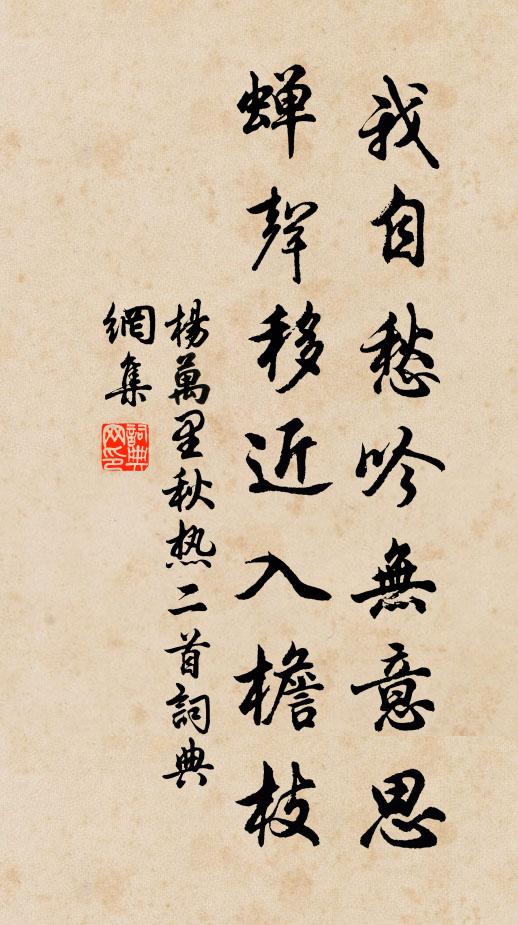 我自愁吟無意思
蝉聲移近入檐枝
楊萬里秋热二首詞典
網集
詞典
网印